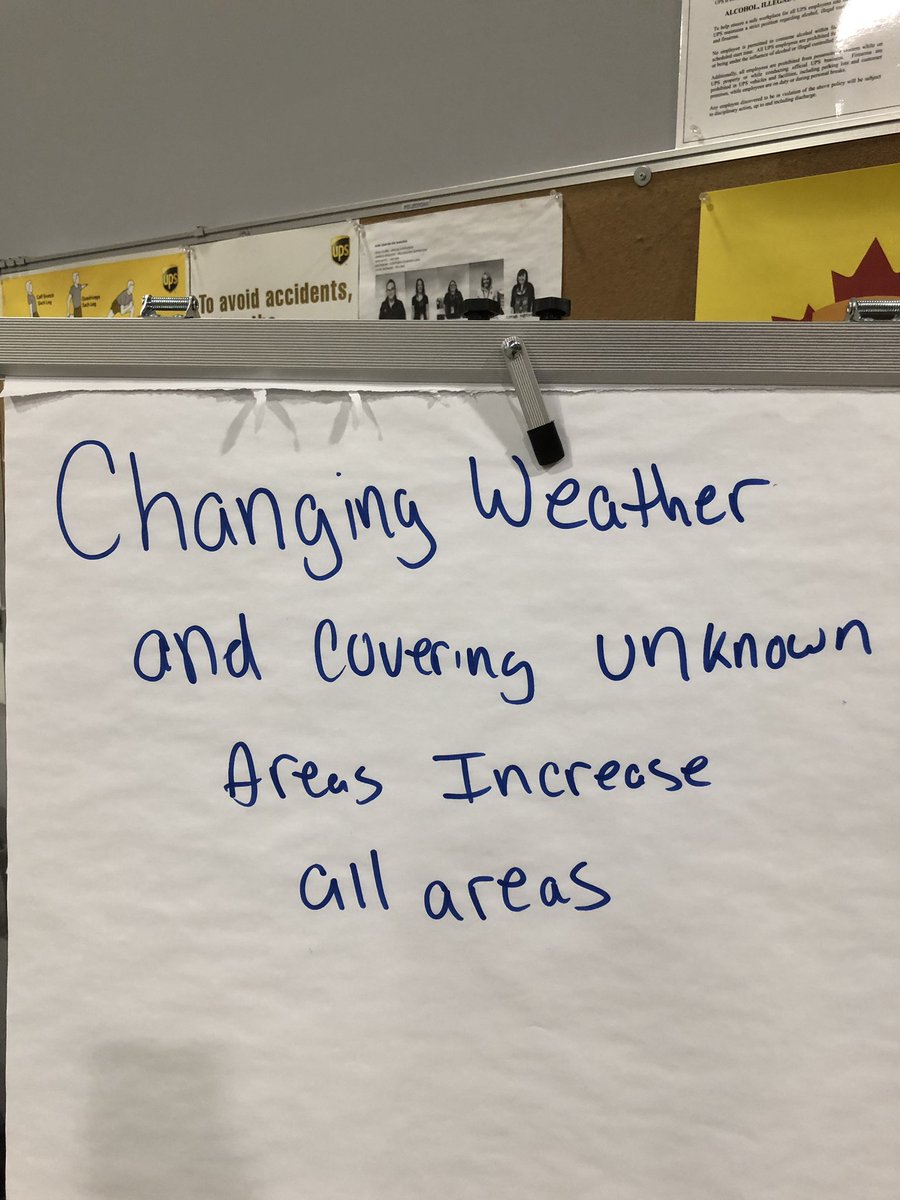 ALCOHOL, ILLEGAL
To help ensure a safe workplace for all UPS employees
UPS maintains a strict position regarding alcohol, illegal
and firearms.
No employee is permitted to consume alcohol within
scheduled start time. All UPS employees are prohibited
or being under the influence of alcohol or illegal controlled
Additionally, all employees are prohibited from
UPS property or while conducting official UPS business. Firearms are
prohibited in UPS vehicles and facilities, including parking lots and customer
premises, while employees are on duty or during personal breaks.
Any employee discovered to be in violation of the above policy will be subject
to disciplinary action, up to and including discharge.
ups
ups
To avoid accidents,
Changing Weather
and Covering unknown
Areas Increase
all areas